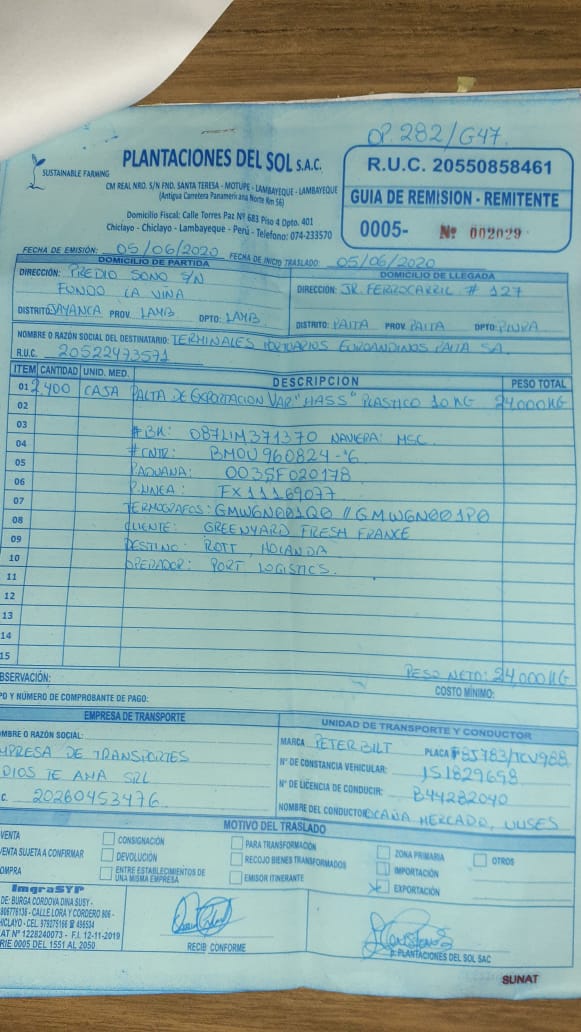 OP. 282/G47.
SUSTAINABLE FARMING
PLANTACIONES DEL SOL S.A.C.
CM REAL NRO. S/N FND. SANTA TERESA - MOTUPE - LAMBAYEQUE - LAMBAYEQUE
(Antigua Carretera Panamericana Norte Km 56)
Domicilio Fiscal: Calle Torres Paz Nº 683 Piso 4 Dpto. 401
Chiclayo - Chiclayo - Lambayeque - Perú - Telefono: 074-233570
R.U.C. 20550858461
GUIA DE REMISION - REMITENTE
0005- Nº 002029
FECHA DE EMISIÓN: 05/06/2020 FECHA DE INICIO TRASLADO: 05/06/2020
DOMICILIO DE PARTIDA
DIRECCIÓN: PREDIO SONO S/N
FUNDO LA VIÑA
DISTRITO: JAYANCA PROV. LAMB DPTO: LAMB
DOMICILIO DE LLEGADA
DIRECCIÓN: JR. FERROCARRIL # 127
DISTRITO: PAITA PROV. PAITA DPTO: PIURA
NOMBRE O RAZÓN SOCIAL DEL DESTINATARIO: TERMINALES PORTUARIOS EUROANDINOS PAITA SA
R.U.C. 20522473571
ITEM CANTIDAD UNID. MED. DESCRIPCION PESO TOTAL
01 2,400 CAJA PALTA DE EXPORTACION VAR "HASS" PLASTICO 10 KG 24,000KG
02
03 # BK: 087LIM371370 NAVIERA: MSC
04 # CNTR: BMOU 960824-6
05 P.ADUANA: 003SF020178
06 P.LINEA: FX11169077
07 TERMOGRAFOS: GMWGN001Q0 // GMWGN001P0
08 CLIENTE: GREENYARD FRESH FRANCE
09 DESTINO: ROTT, HOLANDA
10 OPERADOR: PORT LOGISTICS.
11
12
13
14
15
PESO NETO: 24,000KG
BSERVACIÓN:
COSTO MÍNIMO:
PO Y NÚMERO DE COMPROBANTE DE PAGO:
EMPRESA DE TRANSPORTE
OMBRE O RAZÓN SOCIAL:
MPRESA DE TRANSPORTES
DIOS TE AMA SRL
C. 20260453476
UNIDAD DE TRANSPORTE Y CONDUCTOR
MARCA PETERBILT PLACA
N° DE CONSTANCIA VEHICULAR: 151829698
N° DE LICENCIA DE CONDUCIR: B44282040
NOMBRE DEL CONDUCTOR: OCAÑA MERCADO, ULISES
MOTIVO DEL TRASLADO
VENTA
VENTA SUJETA A CONFIRMAR
OMPRA
CONSIGNACIÓN
DEVOLUCIÓN
ENTRE ESTABLECIMIENTOS DE
UNA MISMA EMPRESA
PARA TRANSFORMACIÓN
RECOJO BIENES TRANSFORMADOS
EMISOR ITINERANTE
ZONA PRIMARIA
IMPORTACIÓN
EXPORTACIÓN
OTROS
ImgraSYP
DE: BURGA CORDOVA DINA SUSY -
806776136 - CALLE LORA Y CORDERO 806 -
HICLAYO - CEL. 979275166 # 496534
AT N° 1228240073 - F.I. 12-11-2019
RIE 0005 DEL 1551 AL 2050
RECIBI CONFORME
p. PLANTACIONES DEL SOL SAC
SUNAT